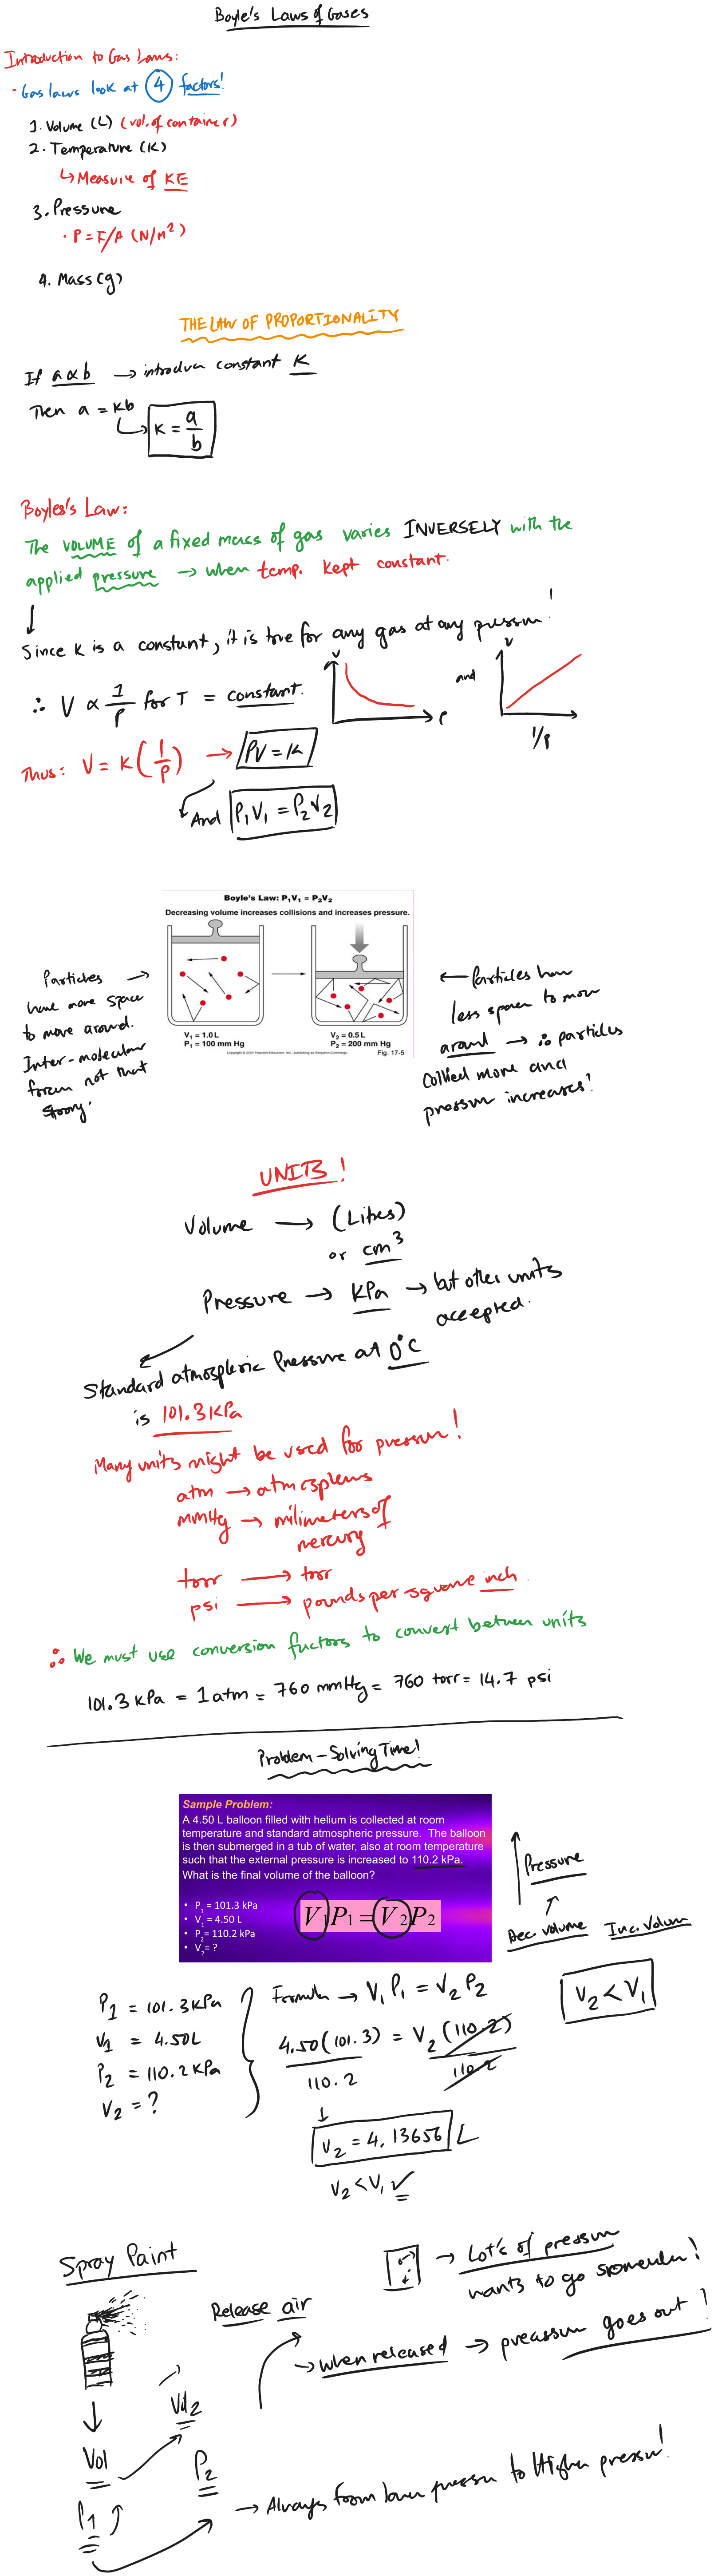 Boyle's Laws of Gases
Introduction to Gas Laws:
- Gas laws look at 4 factors!
1. Volume (L) (vol. of container)
2. Temperature (K)
↳ Measure of KE
3. Pressure
• P = F/A (N/m²)
4. Mass (g)
THE LAW OF PROPORTIONALITY
If a ∝ b → introduce constant K
Then a = Kb
K = a/b
Boyles's Law:
The VOLUME of a fixed mass of gas varies INVERSELY with the
applied pressure → when temp. kept constant.
Since K is a constant, it is true for any gas at any pressure!
∴ V ∝ 1/P for T = constant.
V
P
and
V
1/P
Thus: V = K(1/P) → PV = K
And P₁V₁ = P₂V₂
Boyle's Law: P₁V₁ = P₂V₂
Decreasing volume increases collisions and increases pressure.
V₁ = 1.0 L
P₁ = 100 mm Hg
V₂ = 0.5 L
P₂ = 200 mm Hg
Copyright © 2007 Pearson Education, Inc., publishing as Benjamin Cummings.
Fig. 17-5
Particles →
have more space
to move around.
Inter-molecular
forces not that
strong.
← Particles have
less space to move
around → ∴ particles
collied more and
pressure increases!
UNITS!
Volume → (Litres)
or cm³
Pressure → KPa → but other units
accepted.
Standard atmospheric Pressure at 0°C
is 101.3 KPa
Many units might be used for pressure!
atm → atmospheres
mmHg → milimeters of
mercury
torr → torr
psi → pounds per square inch.
∴ We must use conversion factors to convert between units
101.3 kPa = 1 atm = 760 mmHg = 760 torr = 14.7 psi
Problem-Solving Time!
Sample Problem:
A 4.50 L balloon filled with helium is collected at room
temperature and standard atmospheric pressure. The balloon
is then submerged in a tub of water, also at room temperature
such that the external pressure is increased to 110.2 kPa.
What is the final volume of the balloon?
• P₁ = 101.3 kPa
• V₁ = 4.50 L
• P₂ = 110.2 kPa
• V₂ = ?
V₁P₁ = V₂P₂
↑ Pressure
Dec. volume Inc. Volum
V₂ < V₁
P₁ = 101.3 KPa
V₁ = 4.50L
P₂ = 110.2 KPa
V₂ = ?
Formula → V₁P₁ = V₂P₂
4.50(101.3) = V₂(110.2)
110.2 110.2
V₂ = 4.13656 L
V₂ < V₁ ✓
Spray Paint
→ Lot's of pressure
wants to go
Release air
→ when released → preassure goes out!
Vol
Vol₂
P₁
P₂
→ Always from lower pressure to Higher pressure!